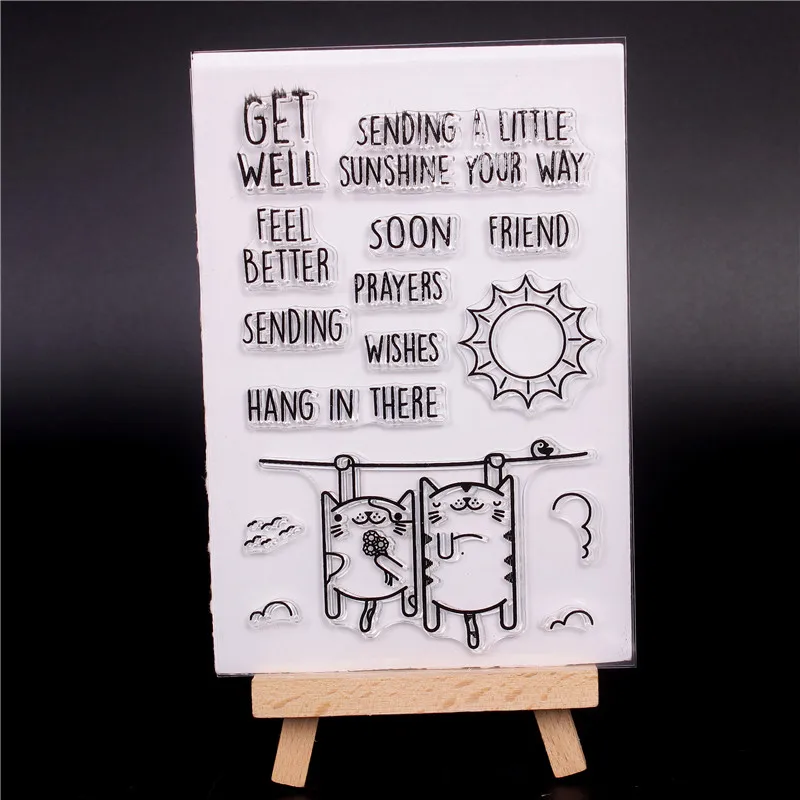 GET
WELL
SENDING A LITTLE
SUNSHINE YOUR WAY
FEEL
BETTER
SOON
FRIEND
PRAYERS
SENDING
WISHES
HANG IN THERE